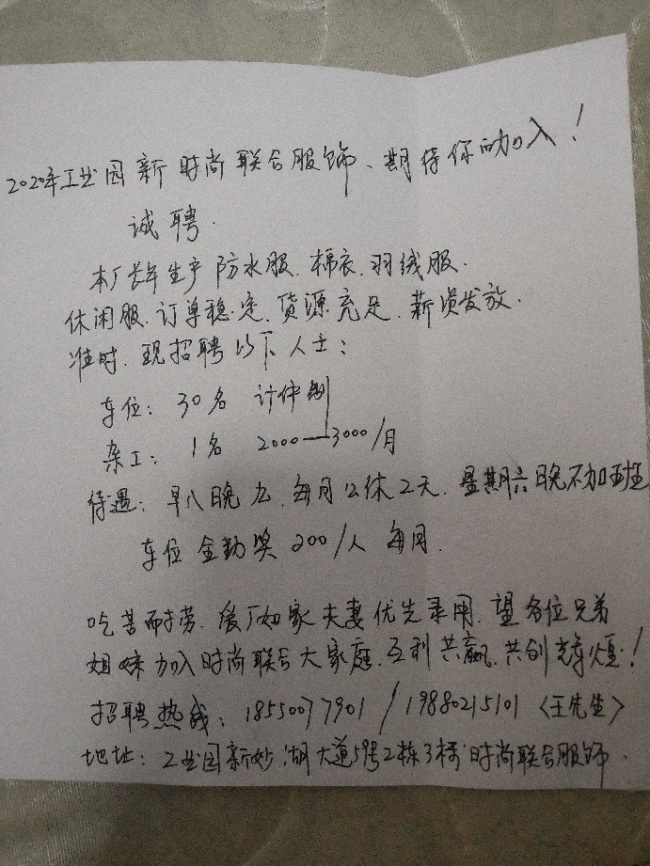 2020年工业园新时尚联合服饰、期待你的加入!
诚聘.
本厂长年生产防水服.棉衣.羽绒服.
休闲服.订单稳定.货源充足.薪资发放.
准时.现招聘以下人士:
车位: 30名 计件制
杂工: 1名 2000—3000/月
待遇: 早八晚九.每月公休2天.星期六晚不加班
车位全勤奖200/人 每月.
吃苦耐劳.爱厂如家夫妻优先录用.望各位兄弟
姐妹加入时尚联合大家庭.互利共赢.共创辉煌!
招聘热线: 18550077901/19880215101〈王先生〉
地址: 工业园新妙湖大道59号2栋3楼时尚联合服饰.